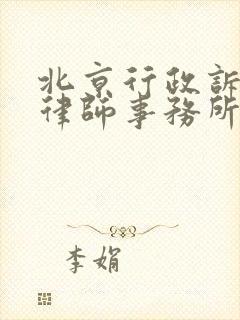 北京行政訴
律師事務所
李娟